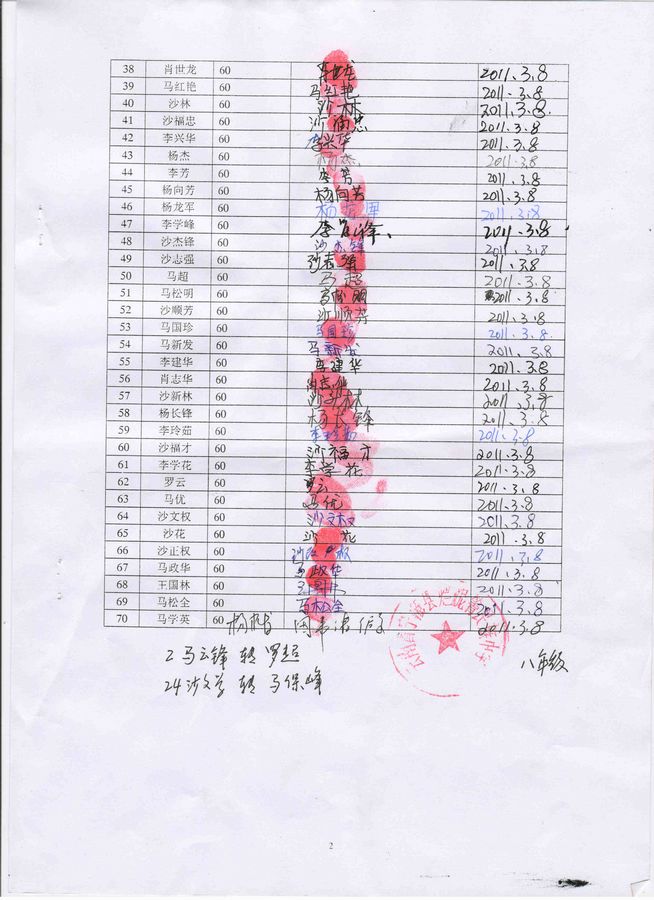 38 肖世龙 60 肖世龙 2011.3.8
39 马红艳 60 马红艳 2011.3.8
40 沙林 60 沙林 2011.3.8
41 沙福忠 60 沙福忠 2011.3.8
42 李兴华 60 李兴华 2011.3.8
43 杨杰 60 杨杰 2011.3.8
44 李芳 60 李芳 2011.3.8
45 杨向芳 60 杨向芳 2011.3.8
46 杨龙军 60 杨龙军 2011.3.8
47 李学峰 60 2011.3.8
48 沙杰锋 60 沙杰锋 2011.3.8
49 沙志强 60 沙志强 2011.3.8
50 马超 60 马超 2011.3.8
51 马松明 60 2011.3.8
52 沙顺芳 60 沙顺芳 2011.3.8
53 马国珍 60 马国珍 2011.3.8
54 马新发 60 马新发 2011.3.8
55 李建华 60 李建华 2011.3.8
56 肖志华 60 2011.3.8
57 沙新林 60 沙新林 2011.3.8
58 杨长锋 60 杨长锋 2011.3.8
59 李玲茹 60 2011.3.8
60 沙福才 60 沙福才 2011.3.8
61 李学花 60 李学花 2011.3.8
62 罗云 60 罗云 2011.3.8
63 马优 60 马优 2011.3.8
64 沙文权 60 沙文权 2011.3.8
65 沙花 60 沙花 2011.3.8
66 沙正权 60 2011.3.8
67 马政华 60 马政华 2011.3.8
68 王国林 60 2011.3.8
69 马松全 60 马松全 2011.3.8
70 马学英 60 2011.3.8
2马云锋 转 罗超
八年级
24沙文学 转 马保峰
2